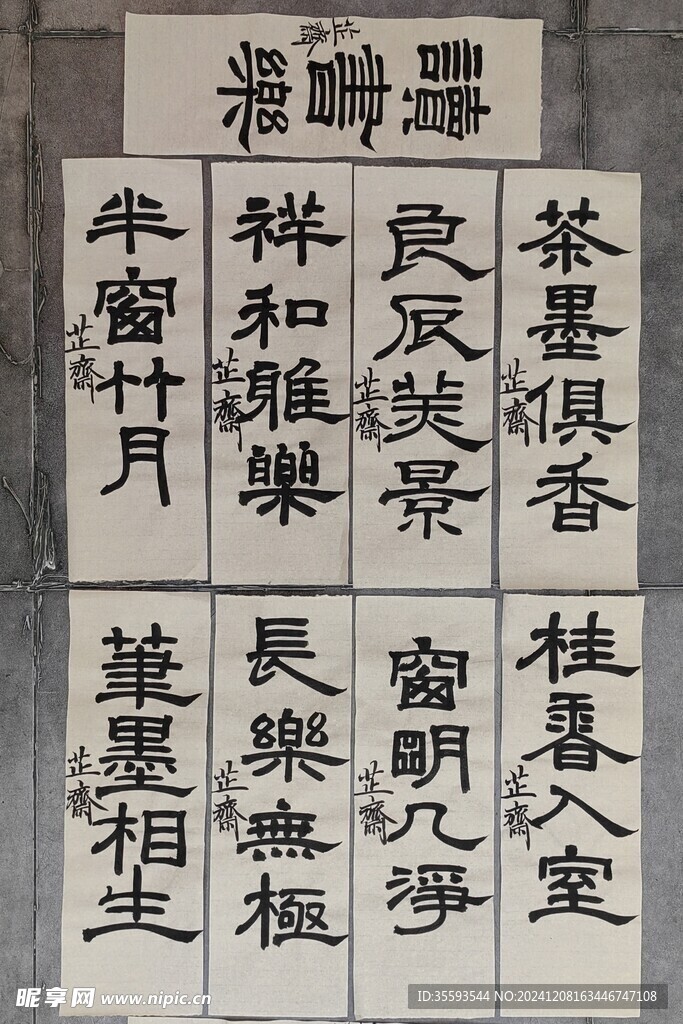 讀書樂
芷齋
茶墨俱香
芷齋
良辰美景
芷齋
祥和雅樂
芷齋
半窗竹月
芷齋
桂香入室
芷齋
窗明几淨
芷齋
長樂無極
芷齋
筆墨相生
芷齋
昵享网 www.nipic.cn
ID:35593544 NO:20241208163446747108